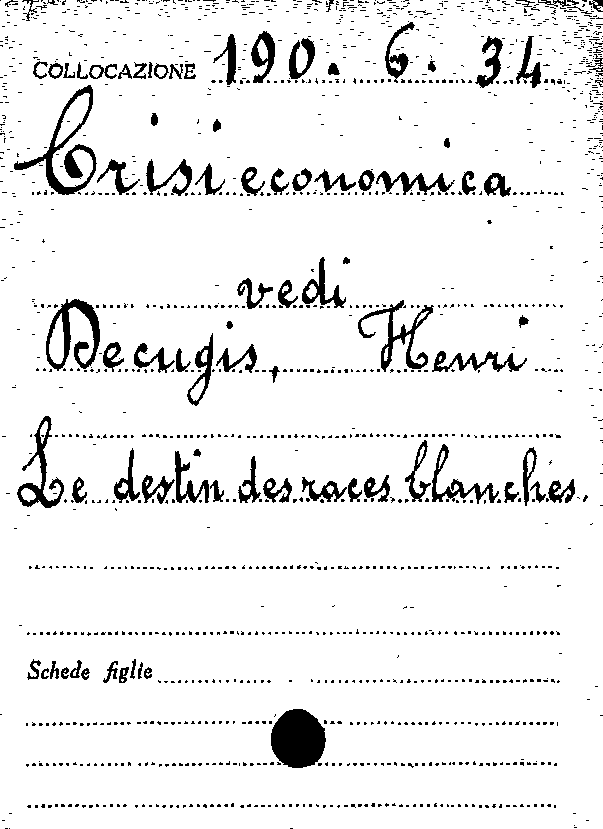 COLLOCAZIONE 190. 6. 34
Crisi economica
vedi
Decugis, Henri
Le destin des races blanches.
Schede figlie